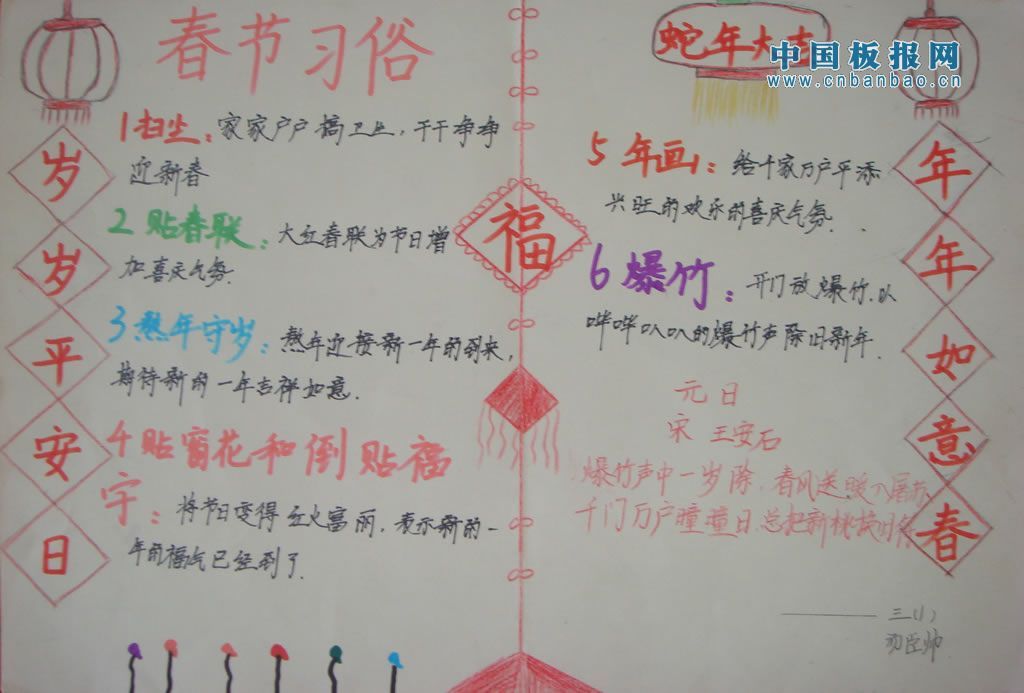 春节习俗
蛇年大吉
中国板报网
www.cnbanbao.cn
岁岁平安日
1扫尘：家家户户搞卫生，干干净净
迎新春
2贴春联：大红春联为节日增
加喜庆气氛.
3熬年守岁：熬年迎接新一年的到来，
期待新的一年吉祥如意.
4贴窗花和倒贴福
字：将节日变得红火富丽，表示新的一
年的福气已经到了.
福
5年画：给千家万户平添
兴旺的欢乐的喜庆气氛.
6爆竹：开门放爆竹.以
哔哔叭叭的爆竹声除旧新年.
元日
宋 王安石
爆竹声中一岁除，春风送暖入屠苏
千门万户曈曈日，总把新桃换旧符
年年如意春
三(1)